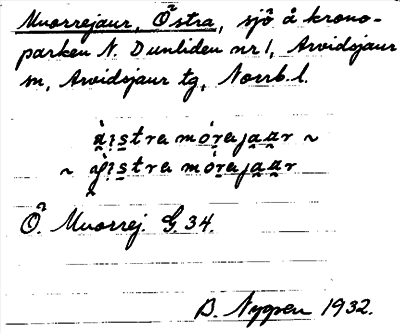 Muorrejaur, Östra, sjö å krono-
parken N. Dunliden nr 1, Arvidsjaur
sn, Arvidsjaur tg, Norrb. l.
ą̀i̯stra mórajaar ~
~ ą̀i̯stra mórajaar
Ö. Muorrej. G. 34.
B. Nygren 1932.